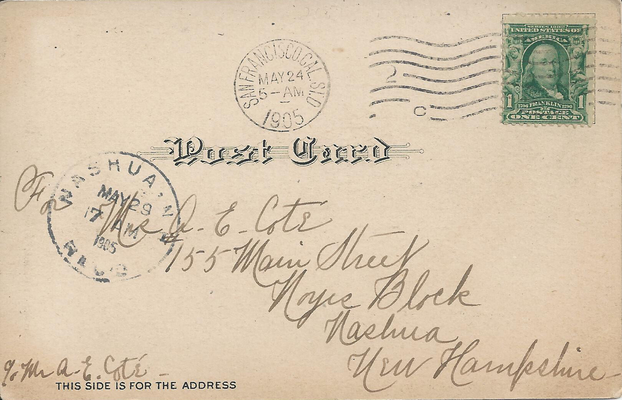 SAN FRANCISCO, CAL. STA. D
MAY 24
5-AM
1905
2
C
SERIES 1902
UNITED STATES OF AMERICA
1 FRANKLIN 1
POSTAGE
ONE CENT
Post Card
NASHUA, N.H.
MAY 29
7 AM
1905
REC'D
For Mrs A. E. Coté
155 Main Street
Noyes Block
Nashua
New Hampshire
c/o Mr A. E. Coté
THIS SIDE IS FOR THE ADDRESS